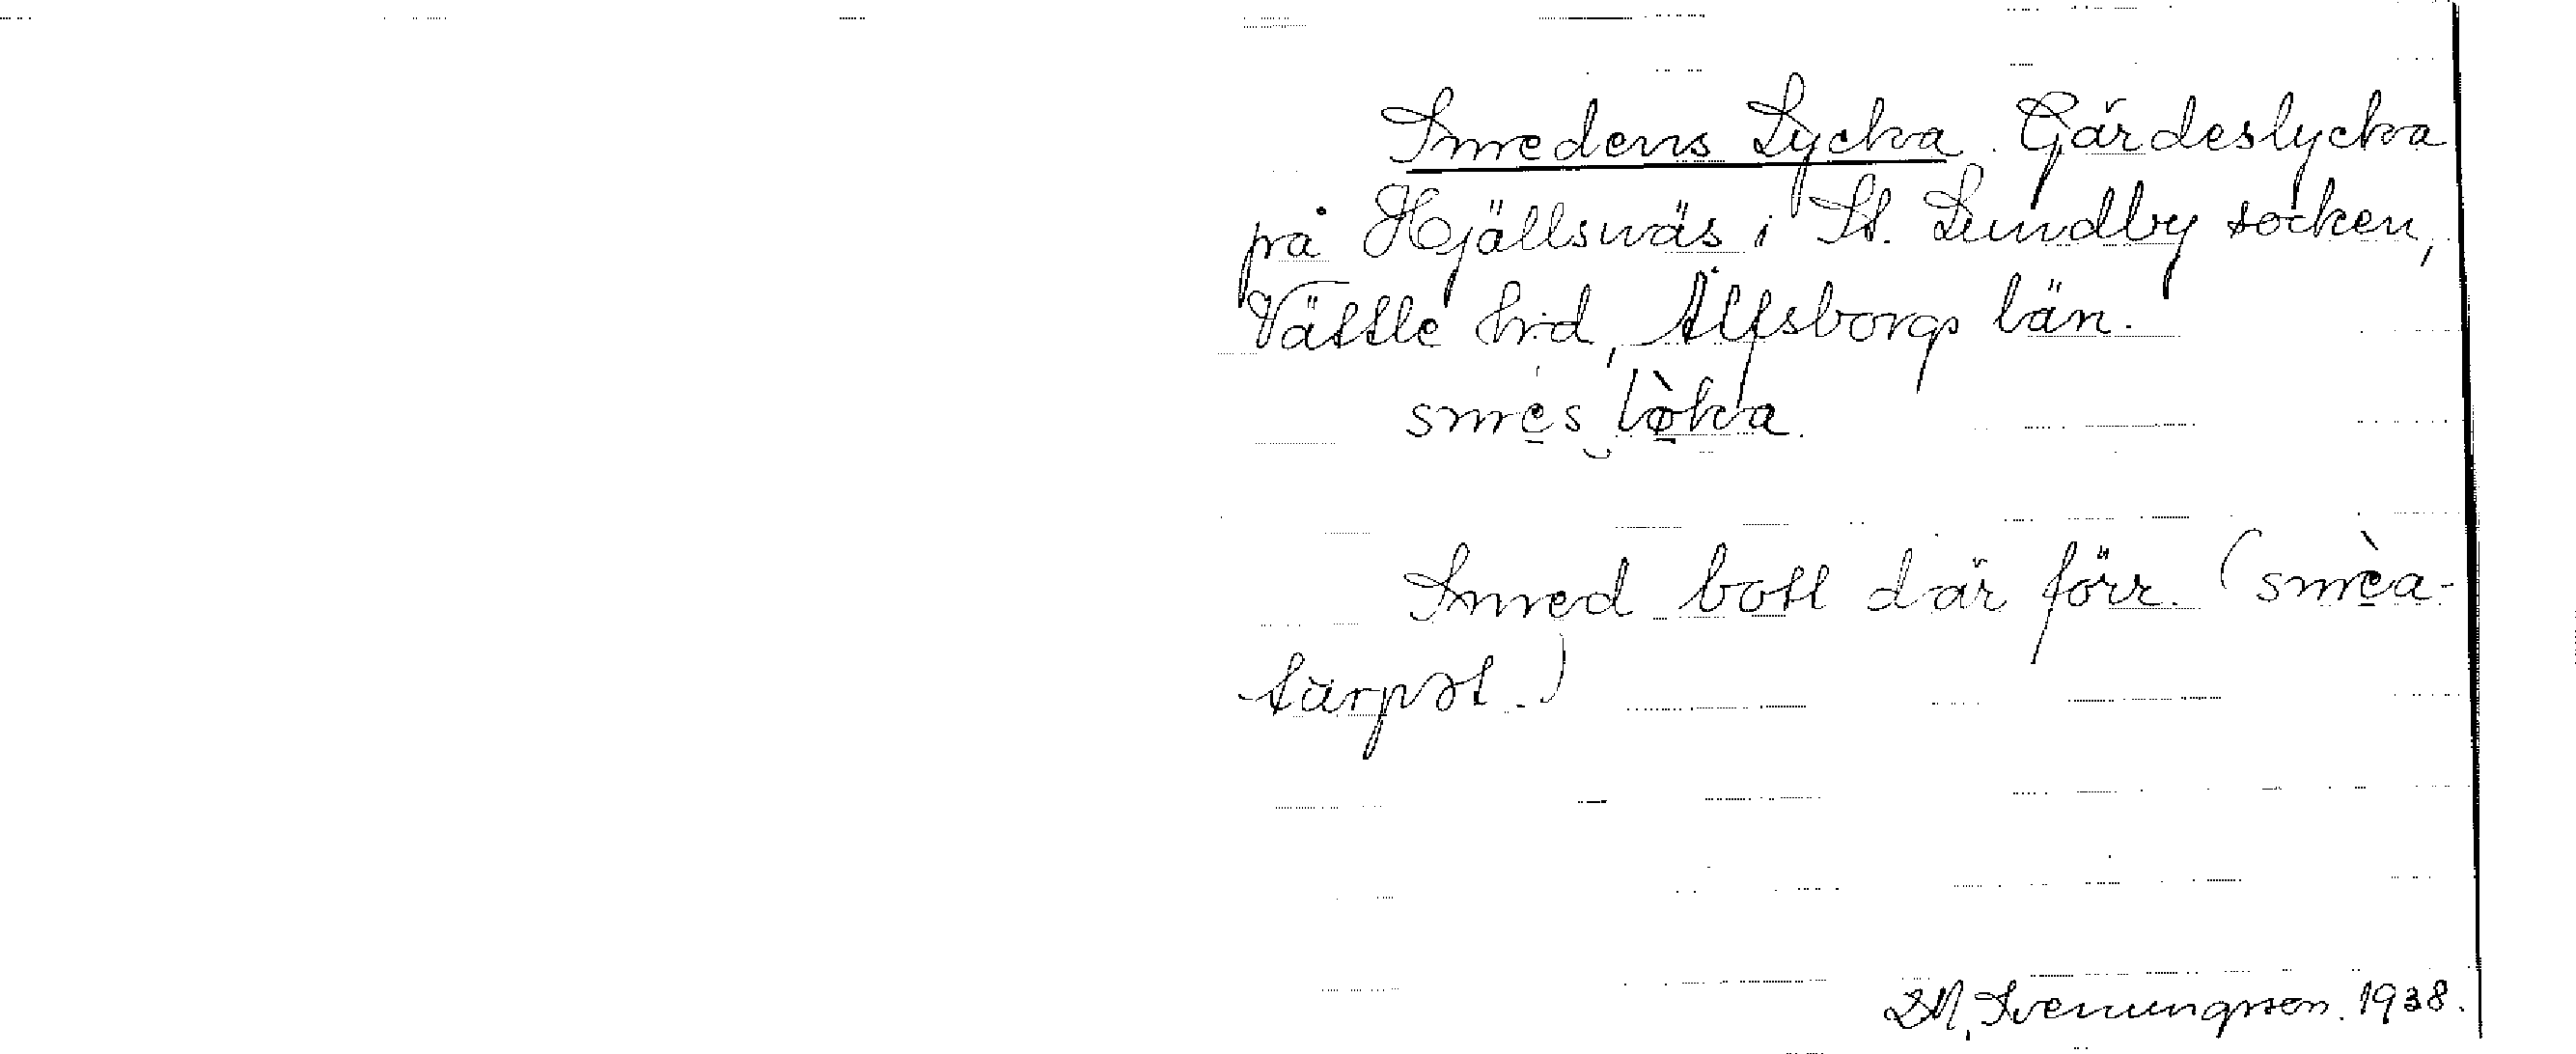 Smedens Lycka. Gärdeslycka
på Hjällsnäs i St. Lundby socken,
Vättle hrd, Älfsborgs län.
smes lòka.
Smed bott där förr. (smèa-
tàrpət.)
Svenungsson. 1938.